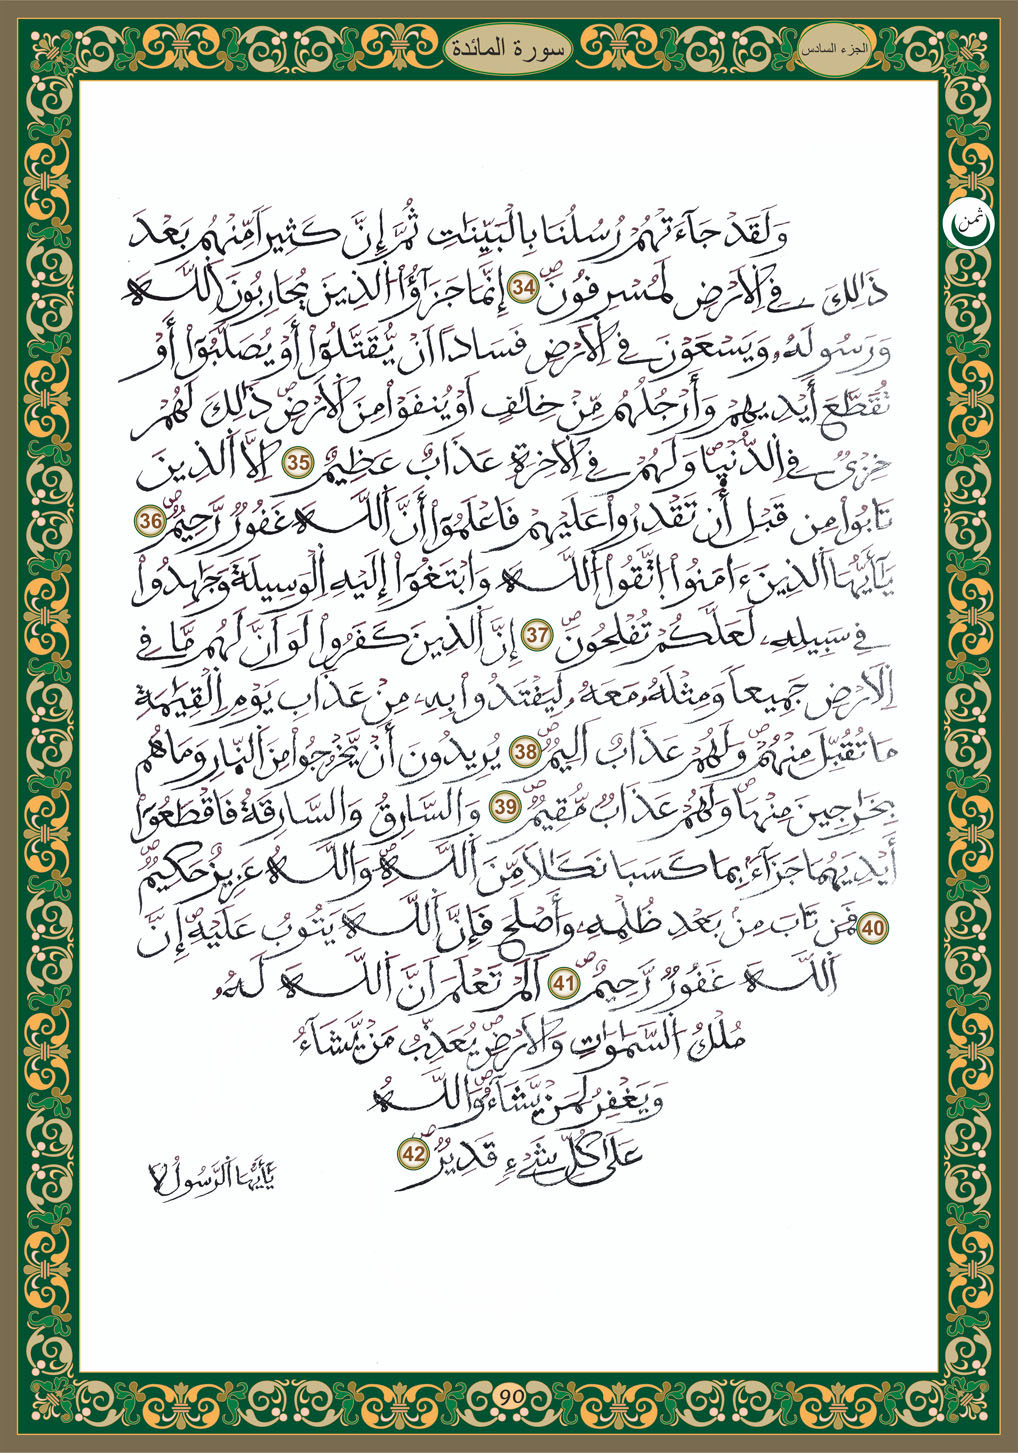 سورة المائدة
الجزء السادس
ثمن
وَلَقَدْ جَآءَتْهُمْ رُسُلُنَا بِالْبَيِّنَٰتِ ثُمَّ إِنَّ كَثِيراً مِّنْهُم بَعْدَ
ذَٰلِكَ فِي اِ۬لَارْضِ لَمُسْرِفُونَۖ 34 إِنَّمَا جَزَٰٓؤُاْ اُ۬لذِينَ يُحَارِبُونَ اَ۬للَّهَ
وَرَسُولَهُۥ وَيَسْعَوْنَ فِي اِ۬لَارْضِ فَسَاداً اَنْ يُّقَتَّلُوٓاْ أَوْ يُصَلَّبُوٓاْ أَوْ
تُقَطَّعَ أَيْدِيهِمْ وَأَرْجُلُهُم مِّنْ خِلَٰفٍ اَوْ يُنفَوْاْ مِنَ اَ۬لَارْضِۖ ذَٰلِكَ لَهُمْ
خِزْيٌ فِي اِ۬لدُّنْي۪اۖ وَلَهُمْ فِي اِ۬لَاخِرَةِ عَذَابٌ عَظِيمٌ 35 اِلَّا اَ۬لذِينَ
تَابُواْ مِن قَبْلِ أَن تَقْدِرُواْ عَلَيْهِمْ فَاعْلَمُوٓاْ أَنَّ اَ۬للَّهَ غَفُورٌ رَّحِيمٌۖ 36
يَٰٓأَيُّهَا اَ۬لذِينَ ءَامَنُواْ اُ۪تَّقُواْ اُ۬للَّهَ وَابْتَغُوٓاْ إِلَيْهِ اِ۬لْوَسِيلَةَ وَجَٰهِدُواْ
فِي سَبِيلِهِۦ لَعَلَّكُمْ تُفْلِحُونَۖ 37 إِنَّ اَ۬لذِينَ كَفَرُواْ لَوَ اَنَّ لَهُم مَّا فِي
اِ۬لَارْضِ جَمِيعاً وَمِثْلَهُۥ مَعَهُۥ لِيَفْتَدُواْ بِهِۦ مِنْ عَذَابِ يَوْمِ اِ۬لْقِيَٰمَةِ
مَا تُقُبِّلَ مِنْهُمْۖ وَلَهُمْ عَذَابٌ اَلِيمٌۖ 38 يُرِيدُونَ أَنْ يَّخْرُجُواْ مِنَ اَ۬لنّ۪ارِ وَمَا هُم
بِخَٰرِجِينَ مِنْهَاۖ وَلَهُمْ عَذَابٌ مُّقِيمٌۖ 39 وَالسَّارِقُ وَالسَّارِقَةُ فَاقْطَعُوٓاْ
أَيْدِيَهُمَا جَزَآءَۢ بِمَا كَسَبَا نَكَٰلاً مِّنَ اَ۬للَّهِۖ وَاللَّهُ عَزِيزٌ حَكِيمٌۖ
40 فَمَن تَابَ مِنۢ بَعْدِ ظُلْمِهِۦ وَأَصْلَحَ فَإِنَّ اَ۬للَّهَ يَتُوبُ عَلَيْهِۖ إِنَّ
اَ۬للَّهَ غَفُورٌ رَّحِيمٌۖ 41 اَلَمْ تَعْلَمَ اَنَّ اَ۬للَّهَ لَهُۥ
مُلْكُ اُ۬لسَّمَٰوَٰتِ وَالَارْضِۖ يُعَذِّبُ مَنْ يَّشَآءُ
وَيَغْفِرُ لِمَنْ يَّشَآءُۖ وَاللَّهُ
عَلَىٰ كُلِّ شَےْءٖ قَدِيرٌۖ 42
يَٰٓأَيُّهَا اَ۬لرَّسُولُ لَا
90